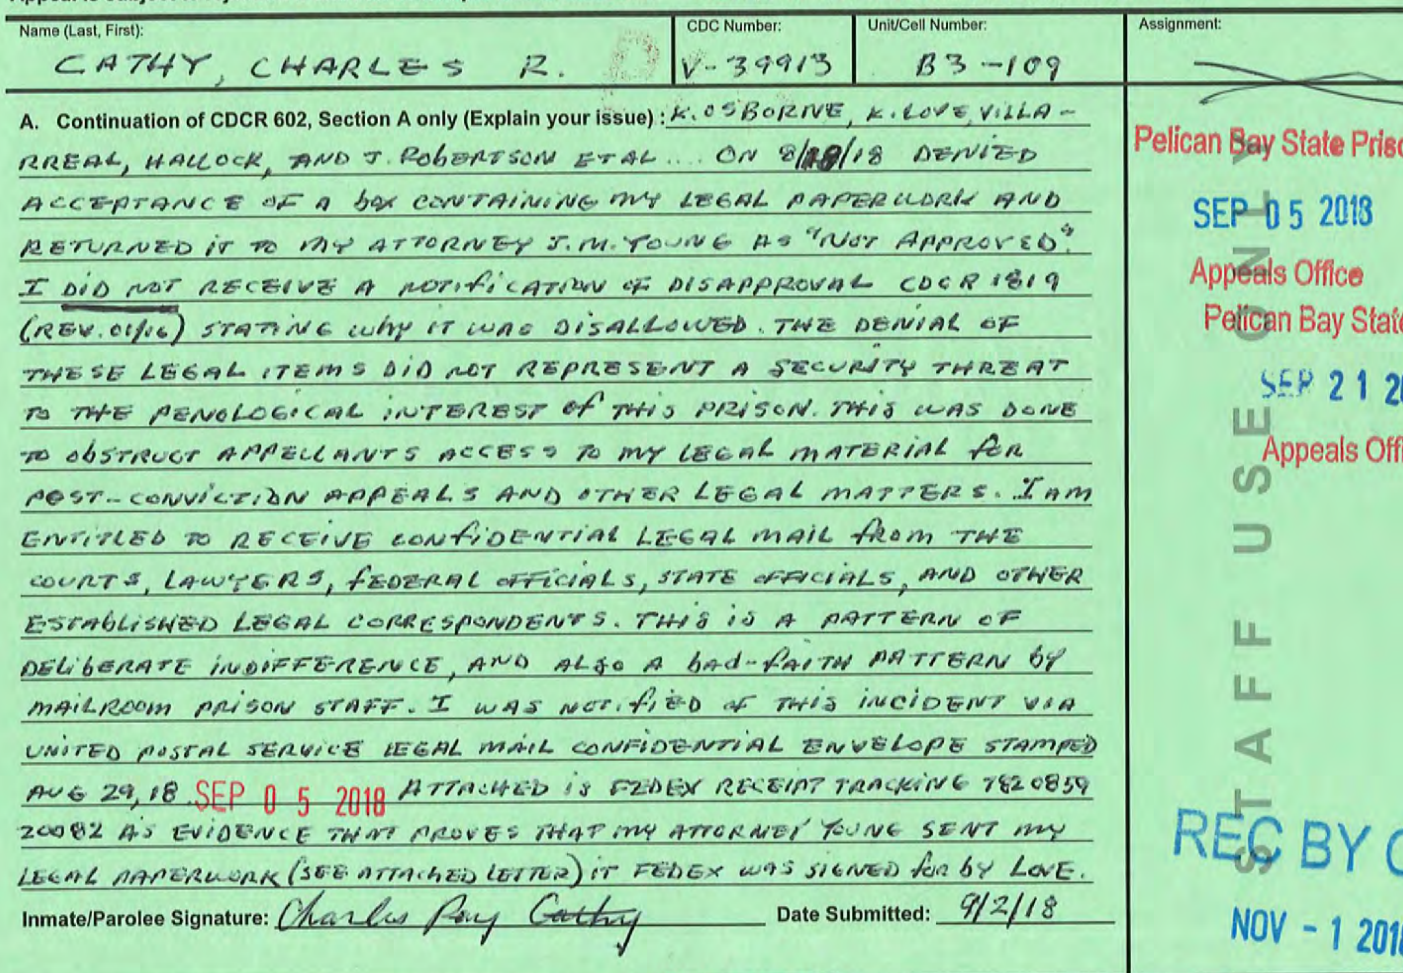 Name (Last, First):
CATHY, CHARLES R.
CDC Number:
V-39913
Unit/Cell Number:
B3-109
Assignment:
A. Continuation of CDCR 602, Section A only (Explain your issue) : K. OSBORNE, K. LOVE, VILLA-
RREAL, HALLOCK, AND J. ROBERTSON ET AL.... ON 8/ /18 DENIED
ACCEPTANCE OF A box CONTAINING MY LEGAL PAPERWORK AND
RETURNED IT TO MY ATTORNEY J.M. YOUNG AS "NOT APPROVED".
I DID NOT RECEIVE A NOTIFICATION OF DISAPPROVAL CDCR 1819
(REV. 01/16) STATING WHY IT WAS DISALLOWED. THE DENIAL OF
THESE LEGAL ITEMS DID NOT REPRESENT A SECURITY THREAT
TO THE PENOLOGICAL INTEREST OF THIS PRISON. THIS WAS DONE
TO ObSTRUCT APPELLANTS ACCESS TO MY LEGAL MATERIAL FOR
POST-CONVICTION APPEALS AND OTHER LEGAL MATTERS. I AM
ENTITLED TO RECEIVE CONFIDENTIAL LEGAL MAIL FROM THE
COURTS, LAWYERS, FEDERAL OFFICIALS, STATE OFFICIALS, AND OTHER
ESTAbLISHED LEGAL CORRESPONDENTS. THIS IS A PATTERN OF
DELIbERATE INDIFFERENCE, AND ALSO A bAd-FAITH PATTERN by
MAILROOM PRISON STAFF. I WAS NOTIFIED OF THIS INCIDENT VIA
UNITED POSTAL SERVICE LEGAL MAIL CONFIDENTIAL ENVELOPE STAMPED
AUG 29, 18. SEP 0 5 2018 ATTACHED IS FEDEX RECEIPT TRACKING 7820859
20082 AS EVIDENCE THAT PROVES THAT MY ATTORNEY YOUNG SENT MY
LEGAL PAPERWORK (SEE ATTACHED LETTER) IT FEDEX WAS SIGNED FOR by LOVE.
Inmate/Parolee Signature: Charles Ray Cathy Date Submitted: 9/2/18
Pelican Bay State Priso
SEP 05 2018
Appeals Office
Pelican Bay State
SEP 21 20
Appeals Offi
STAFF USE ONLY
REC BY O
NOV - 1 2018